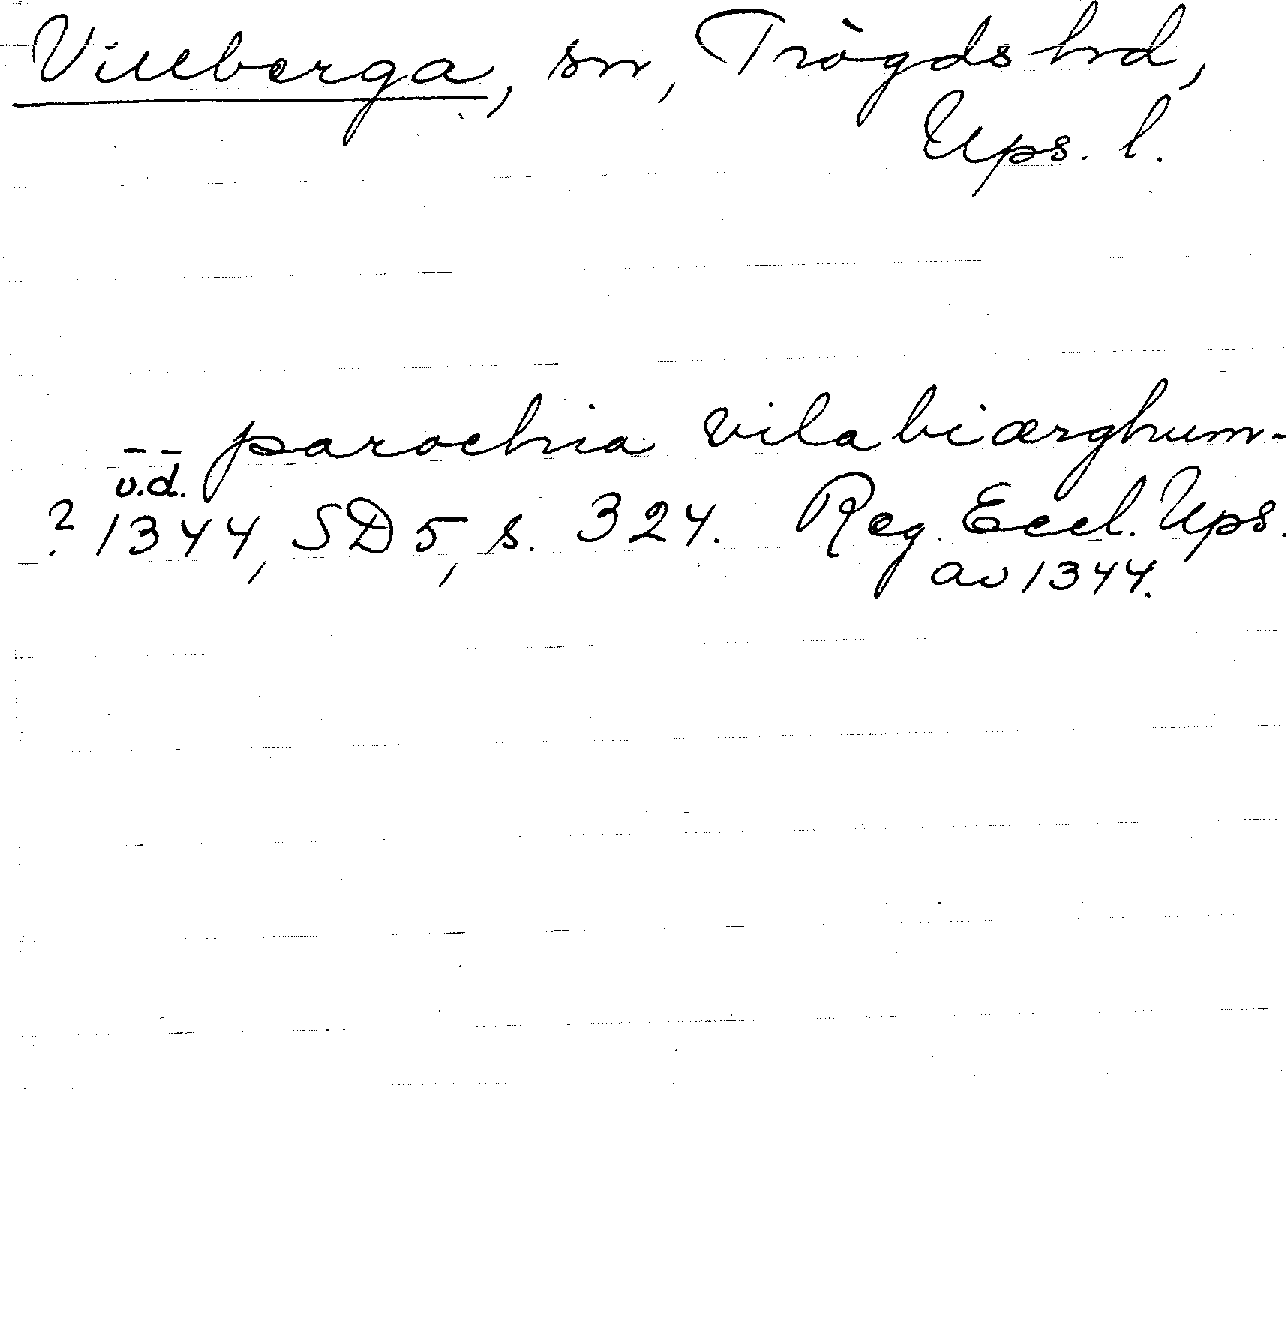 Villberga, sn, Trögds hrd,
Ups. l.
-- parochia vilabiærghum -
u.d.
? 1344, SD 5, s. 324. Reg. Eccl. Ups.
av 1344.